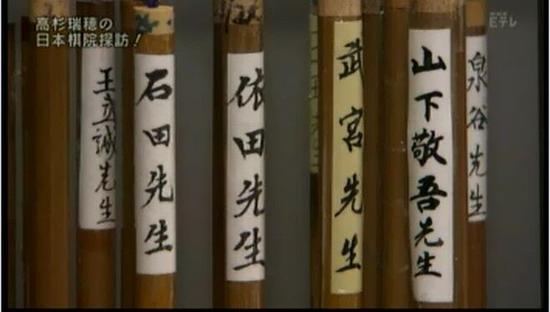 高杉瑞穂の
日本棋院探訪!
Eテレ
王立誠先生
石田先生
依田先生
武宮先生
山下敬吾先生
泉谷先生